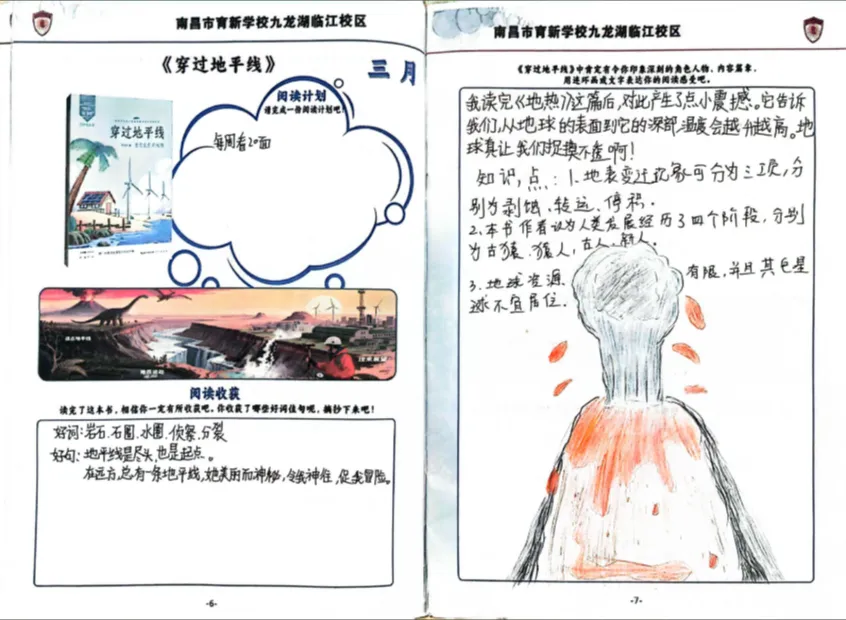 南昌市育新学校九龙湖临江校区
《穿过地平线》
三月
阅读计划
请完成一份阅读计划吧
每周看20面
穿过地平线
阅读收获
读完了这本书,相信你一定有所收获吧。你收获了哪些好词佳句呢,摘抄下来吧!
好词:岩石、石圈、水圈、侦察、分裂
好句:地平线是尽头,也是起点。
在远方,总有一条地平线,她美丽而神秘,令我神往,促我冒险。
-6-
南昌市育新学校九龙湖临江校区
《穿过地平线》中肯定有令你印象深刻的角色人物、内容篇章,
用连环画或文字表达你的阅读感受吧。
我读完《地热》这篇后,对此产生了点小震撼。它告诉
我们,从地球的表面到它的深部,温度会越升越高。地
球真让我们捉摸不透啊!
知识,点:1.地表变迁现象可分为三项,分
别为剥蚀、转运、停积.
2.本书作者认为人类发展经历了四个阶段,分别
为古猿、猿人,古人、新人.
3.地球资源 有限,并且其它星
球不宜居住.
-7-